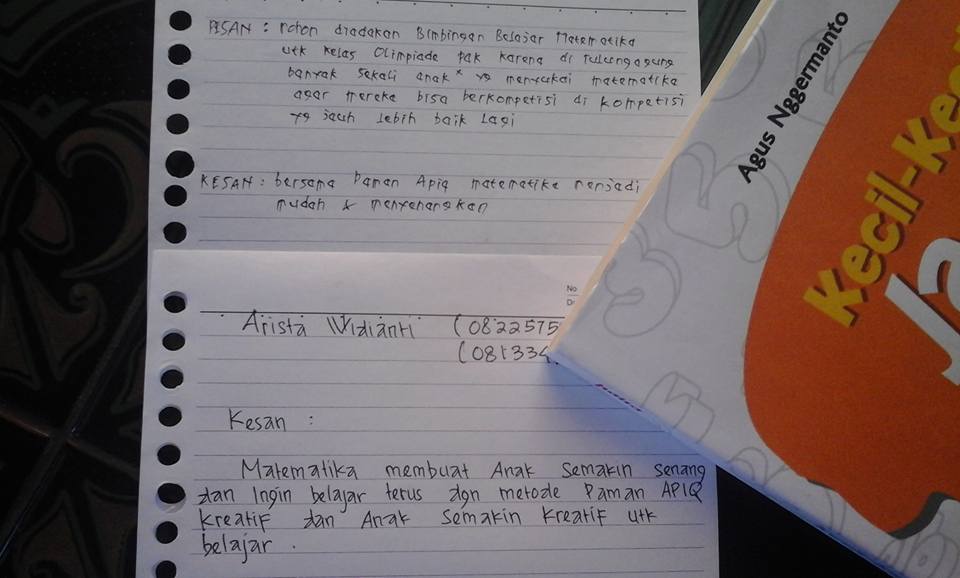 PESAN : Mohon diadakan Bimbingan Belajar Matematika
utk Kelas Olimpiade pak karena di Tulungagung
banyak sekali anak² yg menyukai matematika
agar mereka bisa berkompetisi di kompetisi
yg jauh lebih baik lagi
KESAN : bersama Paman Apiq matematika menjadi
mudah & menyenangkan
No
Arista Widianti (0822575
(081334
Kesan :
Matematika membuat Anak semakin senang
dan Ingin belajar terus dgn metode Paman APIQ
Kreatif dan Anak Semakin Kreatif utk
belajar .
Agus Nggermanto
Kecil-Kec